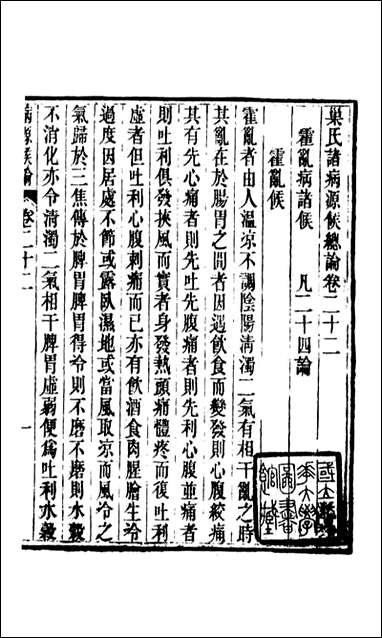 巢氏諸病源候總論卷二十二
霍亂病諸候　凡二十四論
霍亂候
霍亂者由人溫涼不調陰陽清濁二氣有相干亂之時
其亂在於腸胃之間者因遇飲食而變發則心腹絞痛
其有先心痛者則先吐先腹痛者則先利心腹並痛者
則吐利俱發挾風而實者身發熱頭痛體疼而復吐利
虛者但吐利心腹刺痛而已亦有飲酒食肉腥膾生冷
過度因居處不節或露臥濕地或當風取涼而風冷之
氣歸於三焦傳於脾胃脾胃得冷則不磨不磨則水穀
不消化亦令清濁二氣相干脾胃虛弱便為吐利水穀
病源候論　卷二十二　一
國立
大學
圖書
館藏